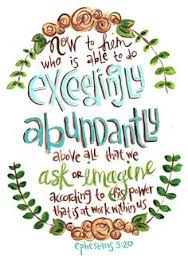 now to him
who is able to do
exceedingly
abundantly
above all that we
ask or imagine
according to his power
that is at work within us
ephesians 3:20